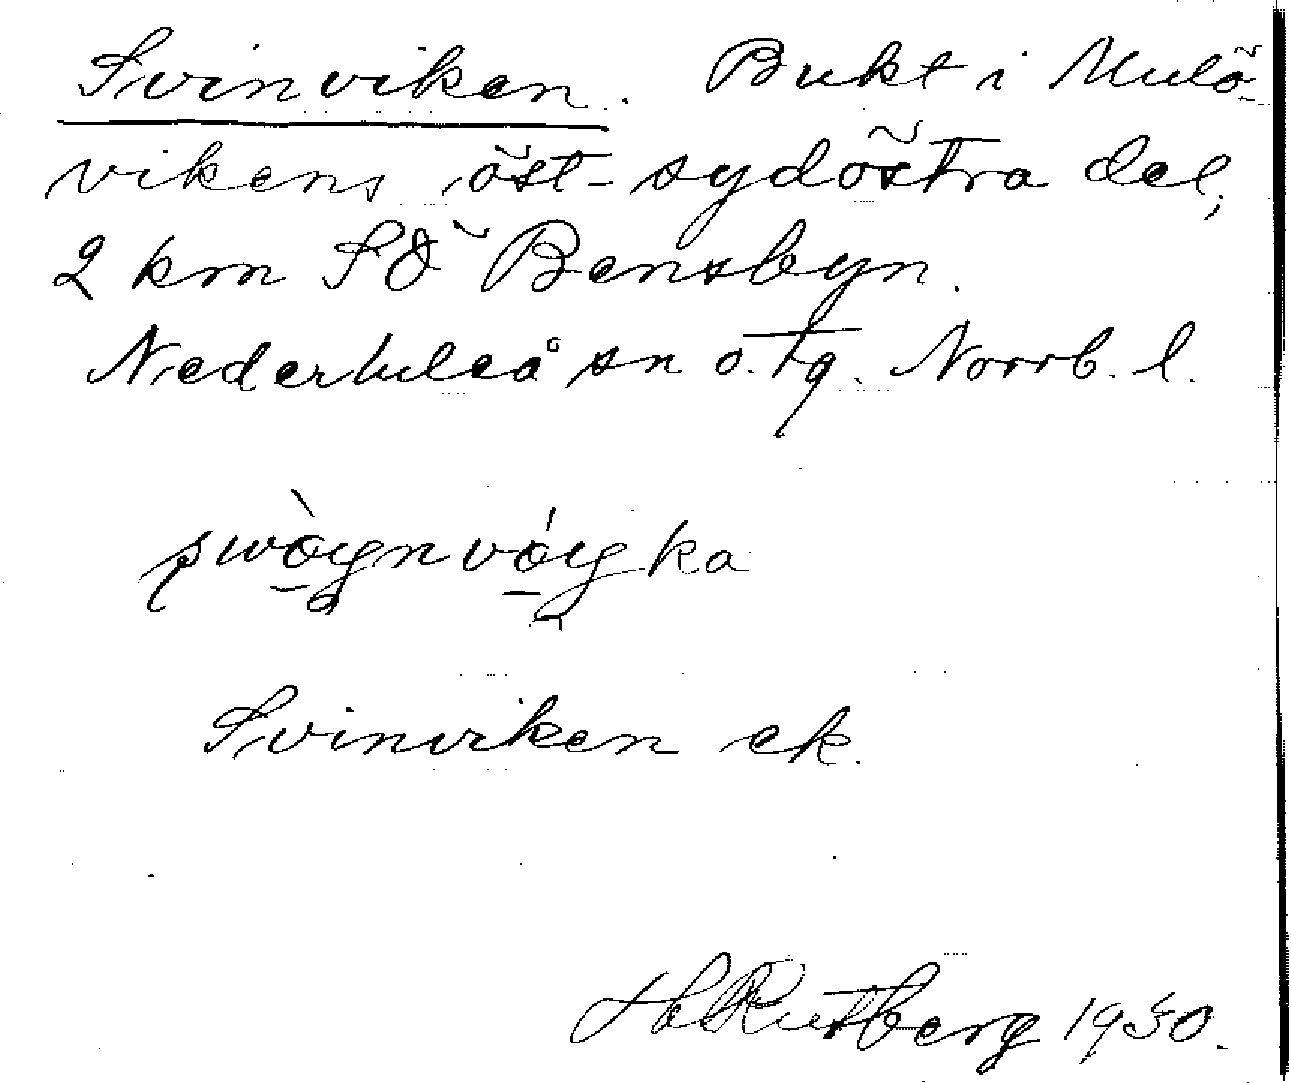 Svinviken. Bukt i Mulö-
vikens öst-sydöstra del,
2 km SÖ Bensbyn.
Nederluleå sn o. tg. Norrb. l.
Svinviken ek.
H Rutberg 1930.